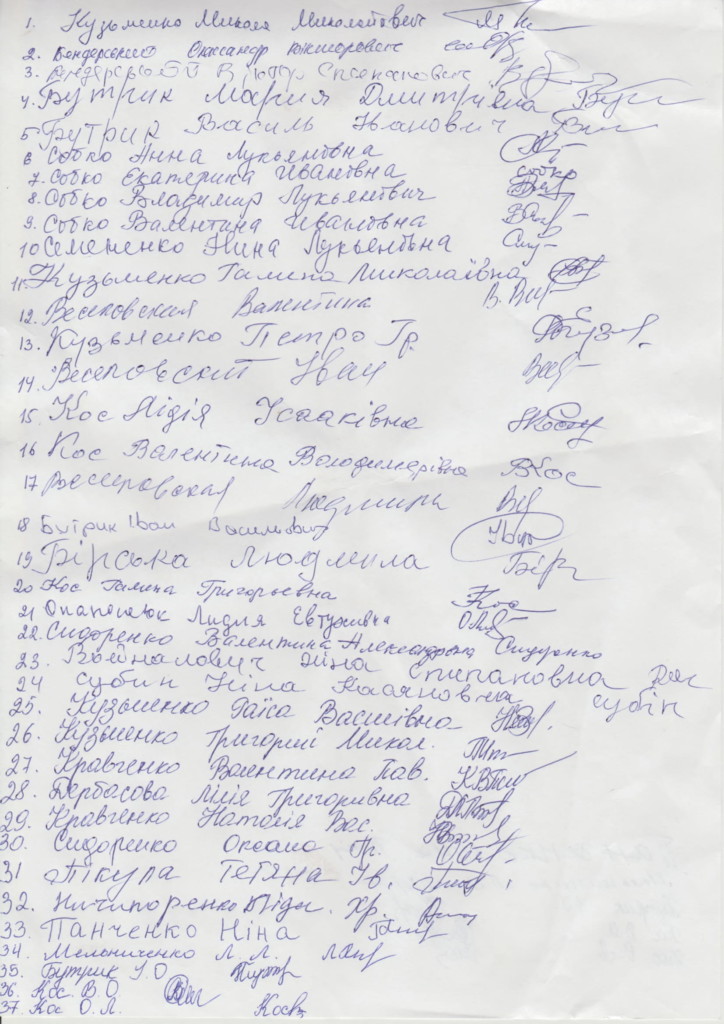 1. Кузьменко Микола Миколайович
2. Бендерский Александр Викторович
3. Бендерський Віктор Степанович
4. Бутрик Мария Дмитриевна
5. Бутрик Василь Іванович
6. Собко Анна Лукьяновна
7. Собко Екатерина Ивановна собко
8. Собко Владимир Лукьянович
9. Собко Валентина Ивановна
10 Семененко Нина Лукьяновна
11. Кузьменко Галина Миколаївна
12. Веселовская Валентина
13. Кузьменко Петро Гр.
14. Веселовский Иван
15. Кос Лідія Ісааківна
16 Кос Валентина Володимирівна ВКос
17 Веселовская Людмила
18 Бутрик Іван Васильович
19 Бірська Людмила
20 Кос Галина Григорьевна
21 Лидия
22. Сидоренко Валентина Александровна Сидоренко
23. Войналович Ніна Степановна
24 Субін Ніна Касяновна субін
25. Кузьменко Раїса Василівна
26. Кузьменко Григорий Микол.
27. Кравченко Валентина Пав.
28. Дербасова Лілія Григоривна
29. Кравченко Наталія Вас.
30. Сидоренко Оксана Гр.
31 Пікула Тетяна Ів.
32. Ничипоренко Лідія Хр.
33. Панченко Ніна
34. Мельниченко Л. Л.
35. Бутрик І.О
36. Кос В.О
37. Кос О.Л.